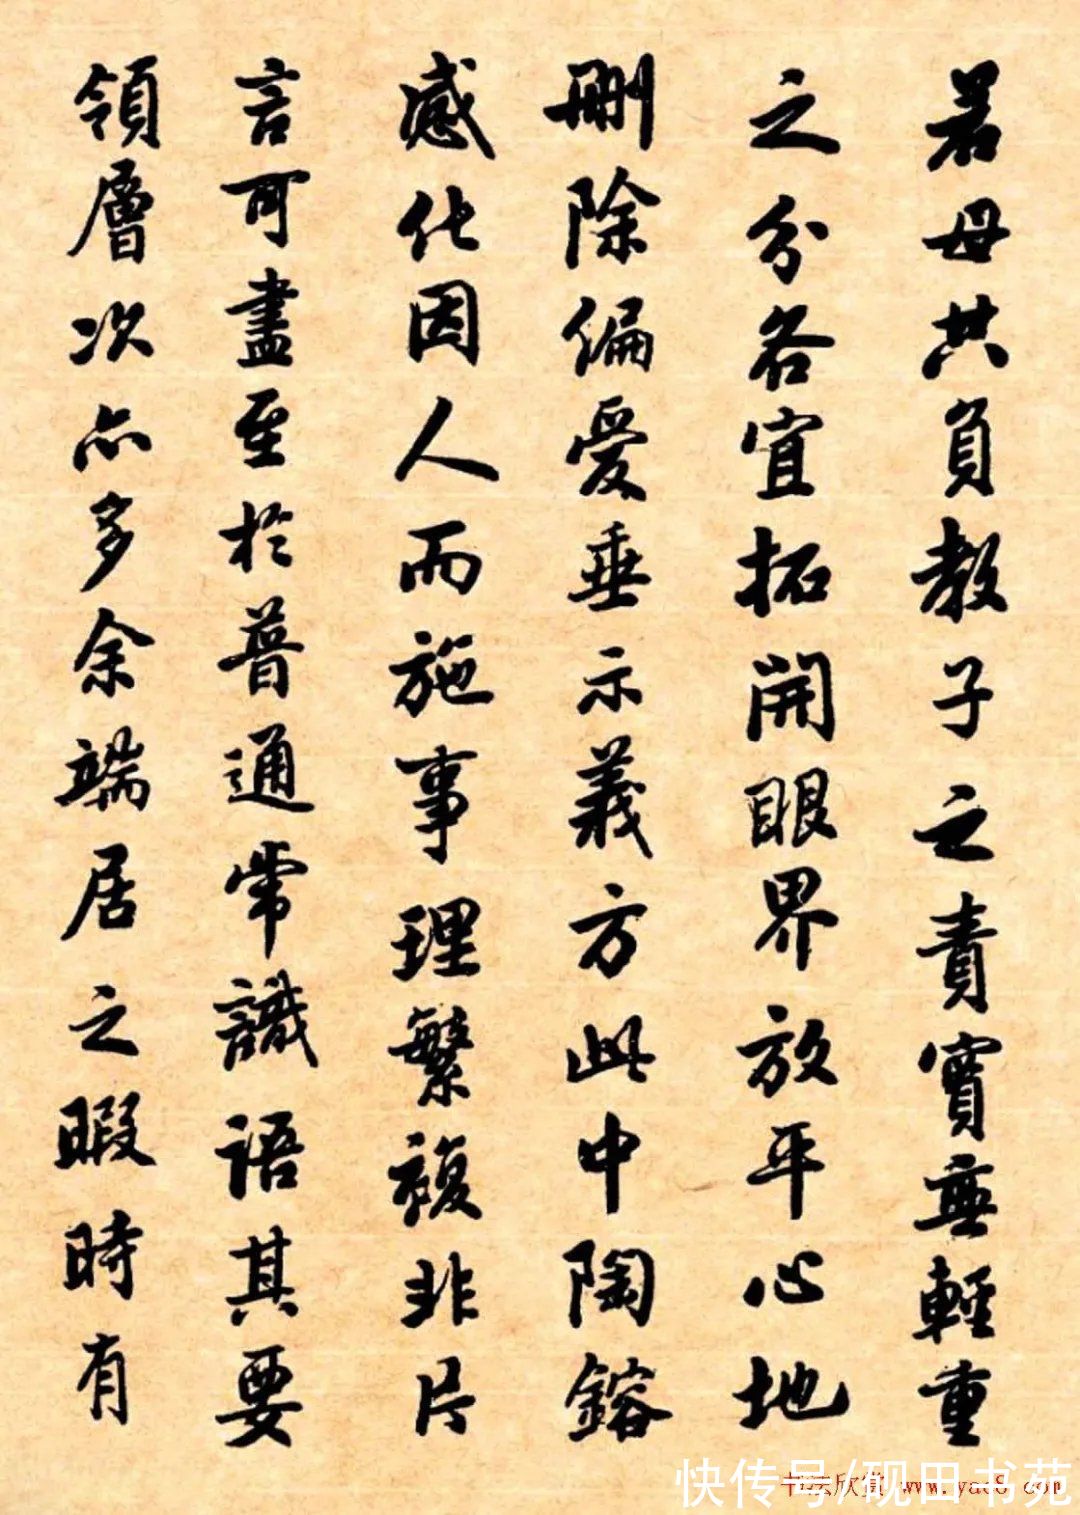 若母共負教子之責實無輕重
之分各宜拓開眼界放平心地
刪除偏愛垂示義方此中陶鎔
感化因人而施事理繁複非片
言可盡至於普通常識語其要
領層次亦多余端居之暇時有
书法欣赏 www.yac8.com
快传号/砚田书苑